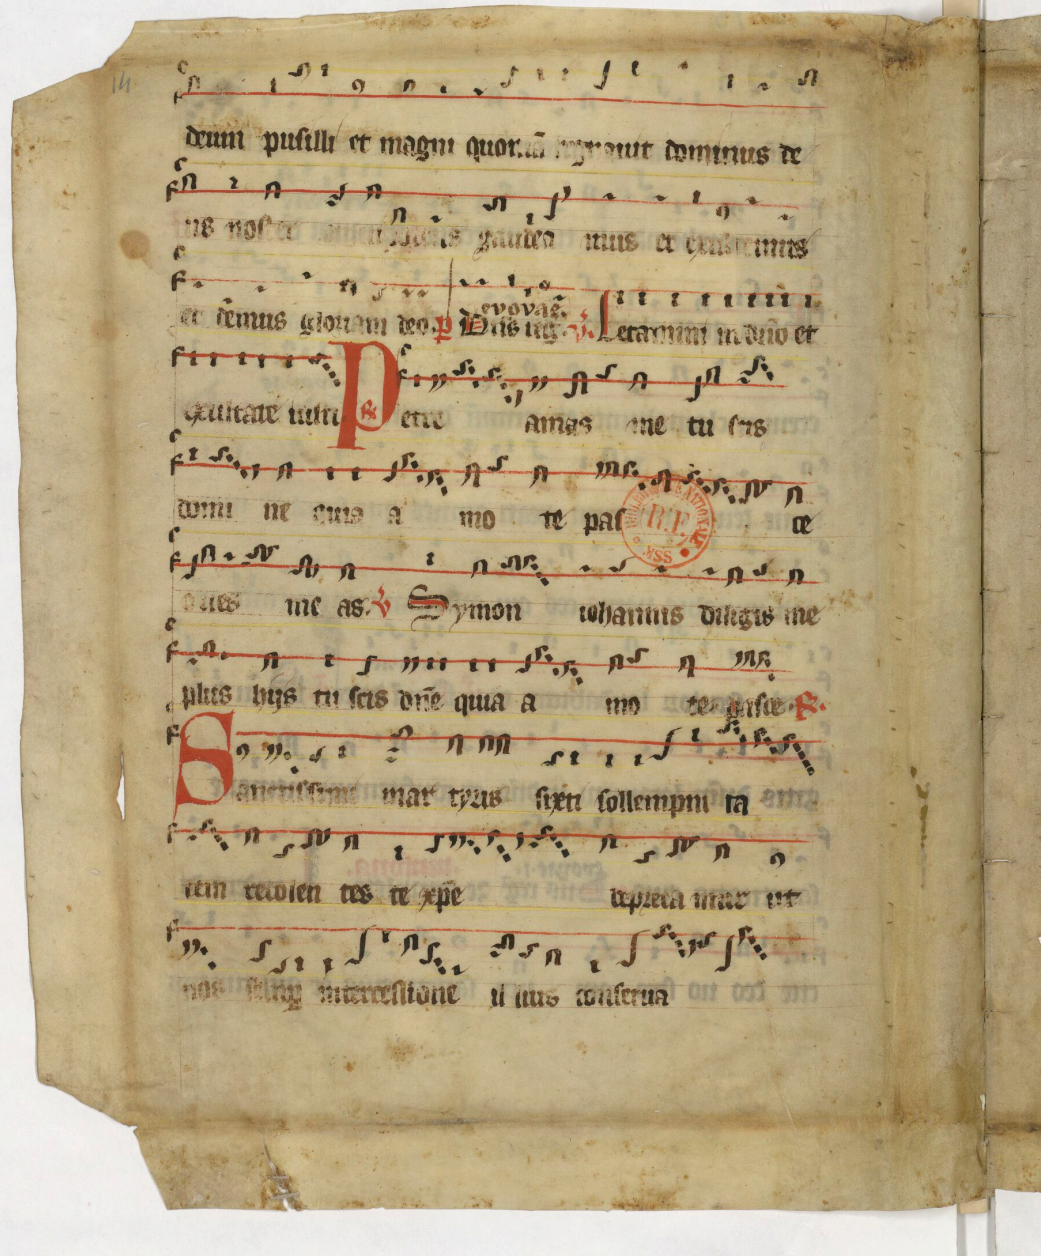 14
deum pusilli et magni quoniā regnauit dominus de
us noster omnipotens gaudea mus et exultemus
et demus gloriam deo. p̄ Dn̄s reg. evovae. v̄. Letamini in dn̄o et
exultate iusti R Petre amas me tu scis
domi ne quia a mo te pas ce
oues me as. v̄ Symon iohannis diligis me
plus hijs tu scis dn̄e quia a mo te. pasce. R.
Sanctissimi mar tyris sixti sollempni ta
tem recolen tes te xp̄e depreca mur ut
nos semp intercessione il lius conserua